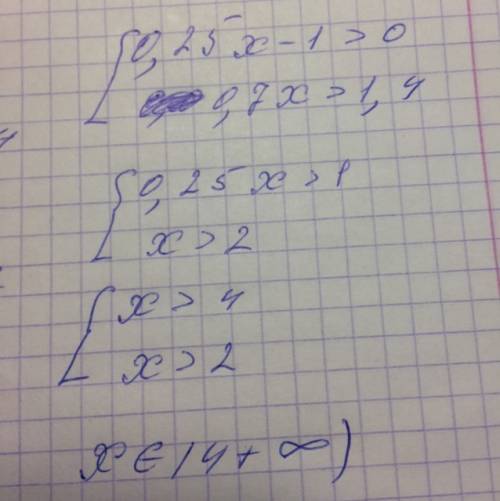 0,25x-1>0
0,7x>1,4
0,25x>1
x>2
x>4
x>2
x∈(4+∞)